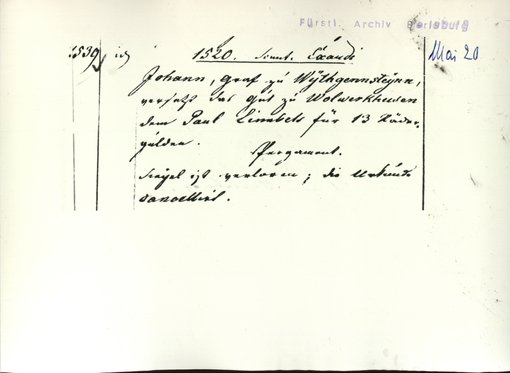 Fürstl. Archiv Berleburg
1539 1520. Sonnt. Exaudi Mai 20
Johann, Graf zu Wythgennsteynn,
versetzt das Gut zu Wolwerkhusen
dem Paul Linebels für 13 Räder-
gulden.
Pergament.
Siegel ist verloren; die Urkunde
cancellirt.